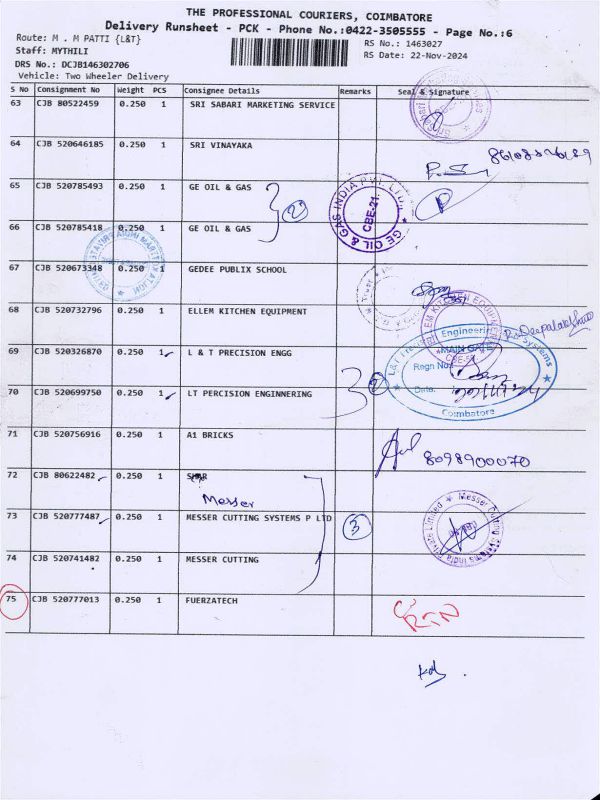 THE PROFESSIONAL COURIERS, COIMBATORE
Delivery Runsheet - PCK - Phone No.:0422-3505555 - Page No.:6
Route: M . M PATTI {L&T}
RS No.: 1463027
Staff: MYTHILI
RS Date: 22-Nov-2024
DRS No.: DCJB146302706
Vehicle: Two Wheeler Delivery
S No Consignment No Weight PCS Consignee Details Remarks Seal & Signature
63 CJB 80522459 0.250 1 SRI SABARI MARKETING SERVICE
64 CJB 520646185 0.250 1 SRI VINAYAKA
65 CJB 520785493 0.250 1 GE OIL & GAS
2
GE OIL & GAS INDIA PVT. LTD.
CBE-21
66 CJB 520785418 0.250 1 GE OIL & GAS
67 CJB 520673348 0.250 1 GEDEE PUBLIX SCHOOL
68 CJB 520732796 0.250 1 ELLEM KITCHEN EQUIPMENT
ELLEM KITCHEN EQUIPMENT
69 CJB 520326870 0.250 1 L & T PRECISION ENGG
Engineering Systems
MAIN GATE
Regn No:
Date:
Coimbatore
70 CJB 520699750 0.250 1 LT PERCISION ENGINNERING
2
71 CJB 520756916 0.250 1 A1 BRICKS
8098900070
72 CJB 80622482 0.250 1
Messer
73 CJB 520777487 0.250 1 MESSER CUTTING SYSTEMS P LTD
3
Messer Cutting Systems India Private Limited
74 CJB 520741482 0.250 1 MESSER CUTTING
75 CJB 520777013 0.250 1 FUERZATECH
RTN